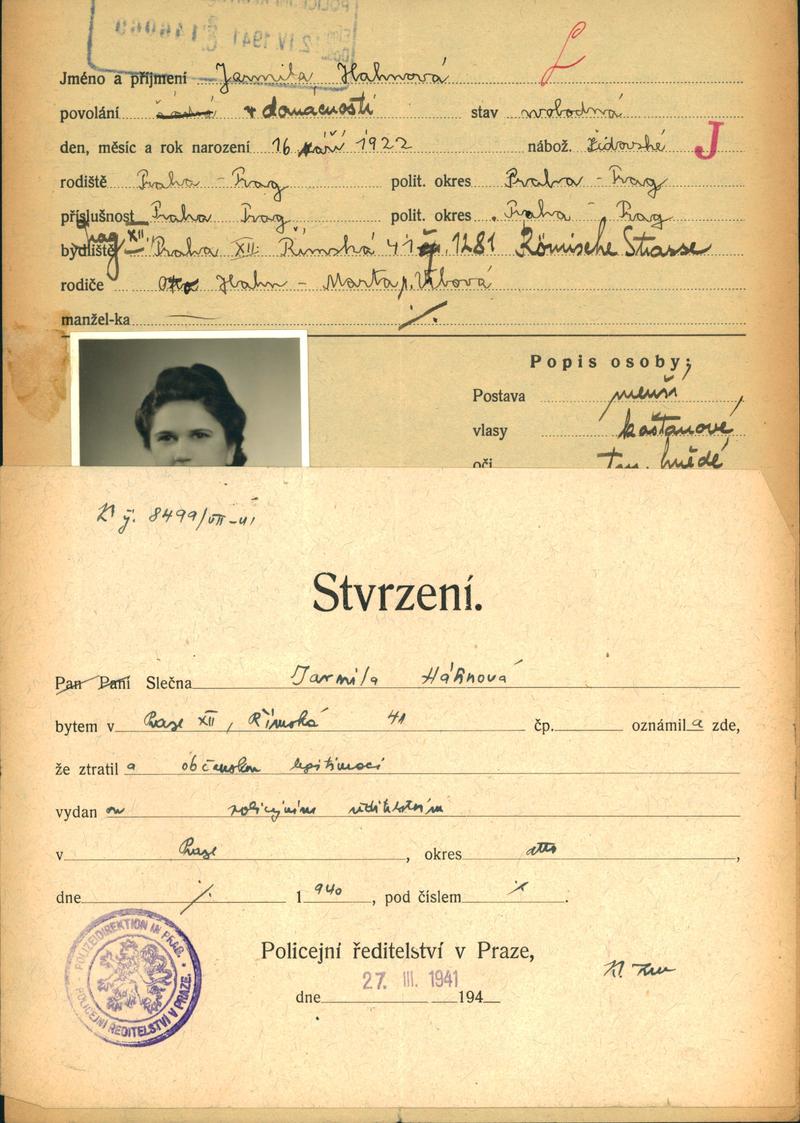 12 IV. 1941
Jméno a příjmení Jarmila Hahnová
povolání žádné v domácnosti stav svobodná
den, měsíc a rok narození 16 září 1922 nábož. židovské J
rodiště Praha - Prag polit. okres Praha - Prag
příslušnost Praha Prag polit. okres Praha - Prag
Prag XII.
bydliště Praha XII. Římská 41 čp. 1281 Römische Strasse
rodiče Otto Hahn - Marta r.
manžel-ka
Popis osoby;
Postava menší
vlasy kaštanové
oči tm. hnědé
8499/VII-41
Stvrzení.
Pan Paní Slečna Jarmila Háhnová
bytem v Praze XII, Římská 41 čp. oznámil a zde,
že ztratil a občanskou legitimaci
vydanou policejním ředitelstvím
v Praze, okres dtto,
dne 1940, pod číslem .
Policejní ředitelství v Praze,
27. III. 1941
dne 194
POLIZEIDIREKTION IN PRAG.
POLICEJNÍ ŘEDITELSTVÍ V PRAZE.